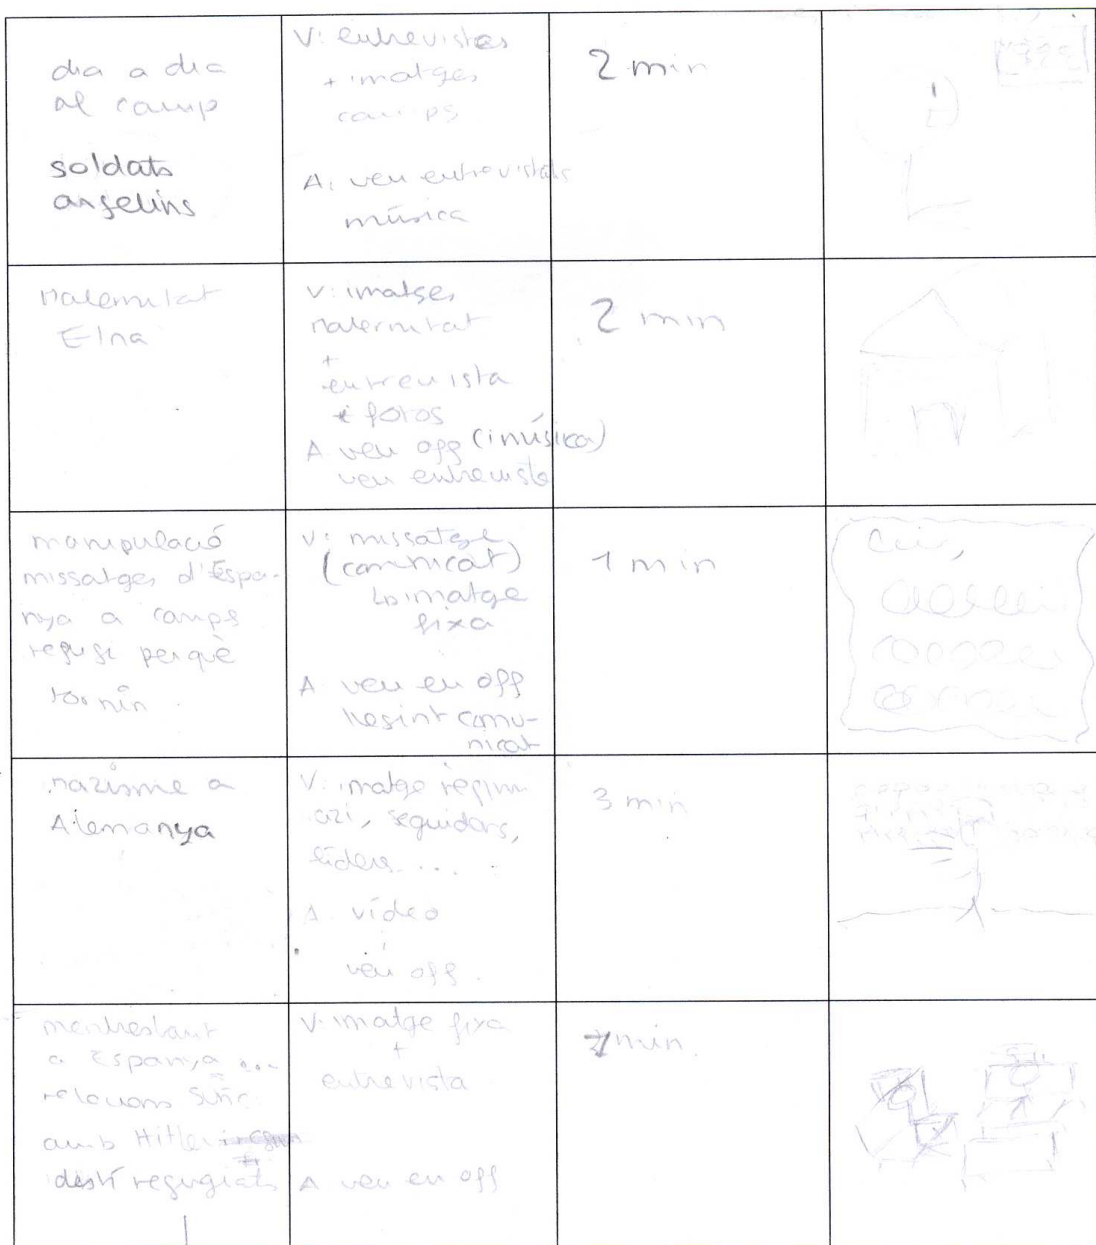 dia a dia
al camp
soldats
argelins
V: entrevistes
+ imatges
camps
A: veu entrevistats
música
2 min
Maternitat
Elna
V: imatges
maternitat
+
entrevista
fotos
A veu off (i música)
veu entrevista
2 min
manipulació
missatges d'Espa-
nya a camps
refugi perquè
tornin.
V: missatge
(comunicat)
imatge
fixa
A veu en off
llegint comu-
nicat
1 min
nazisme a
Alemanya
V: imatge règim
nazi, seguidors,
líders ...
A vídeo
+
veu off.
3 min
mentrestant
a Espanya ...
relacions
amb Hitler
destí refugiats
V: imatge fixa
+
entrevista
A veu en off
min.